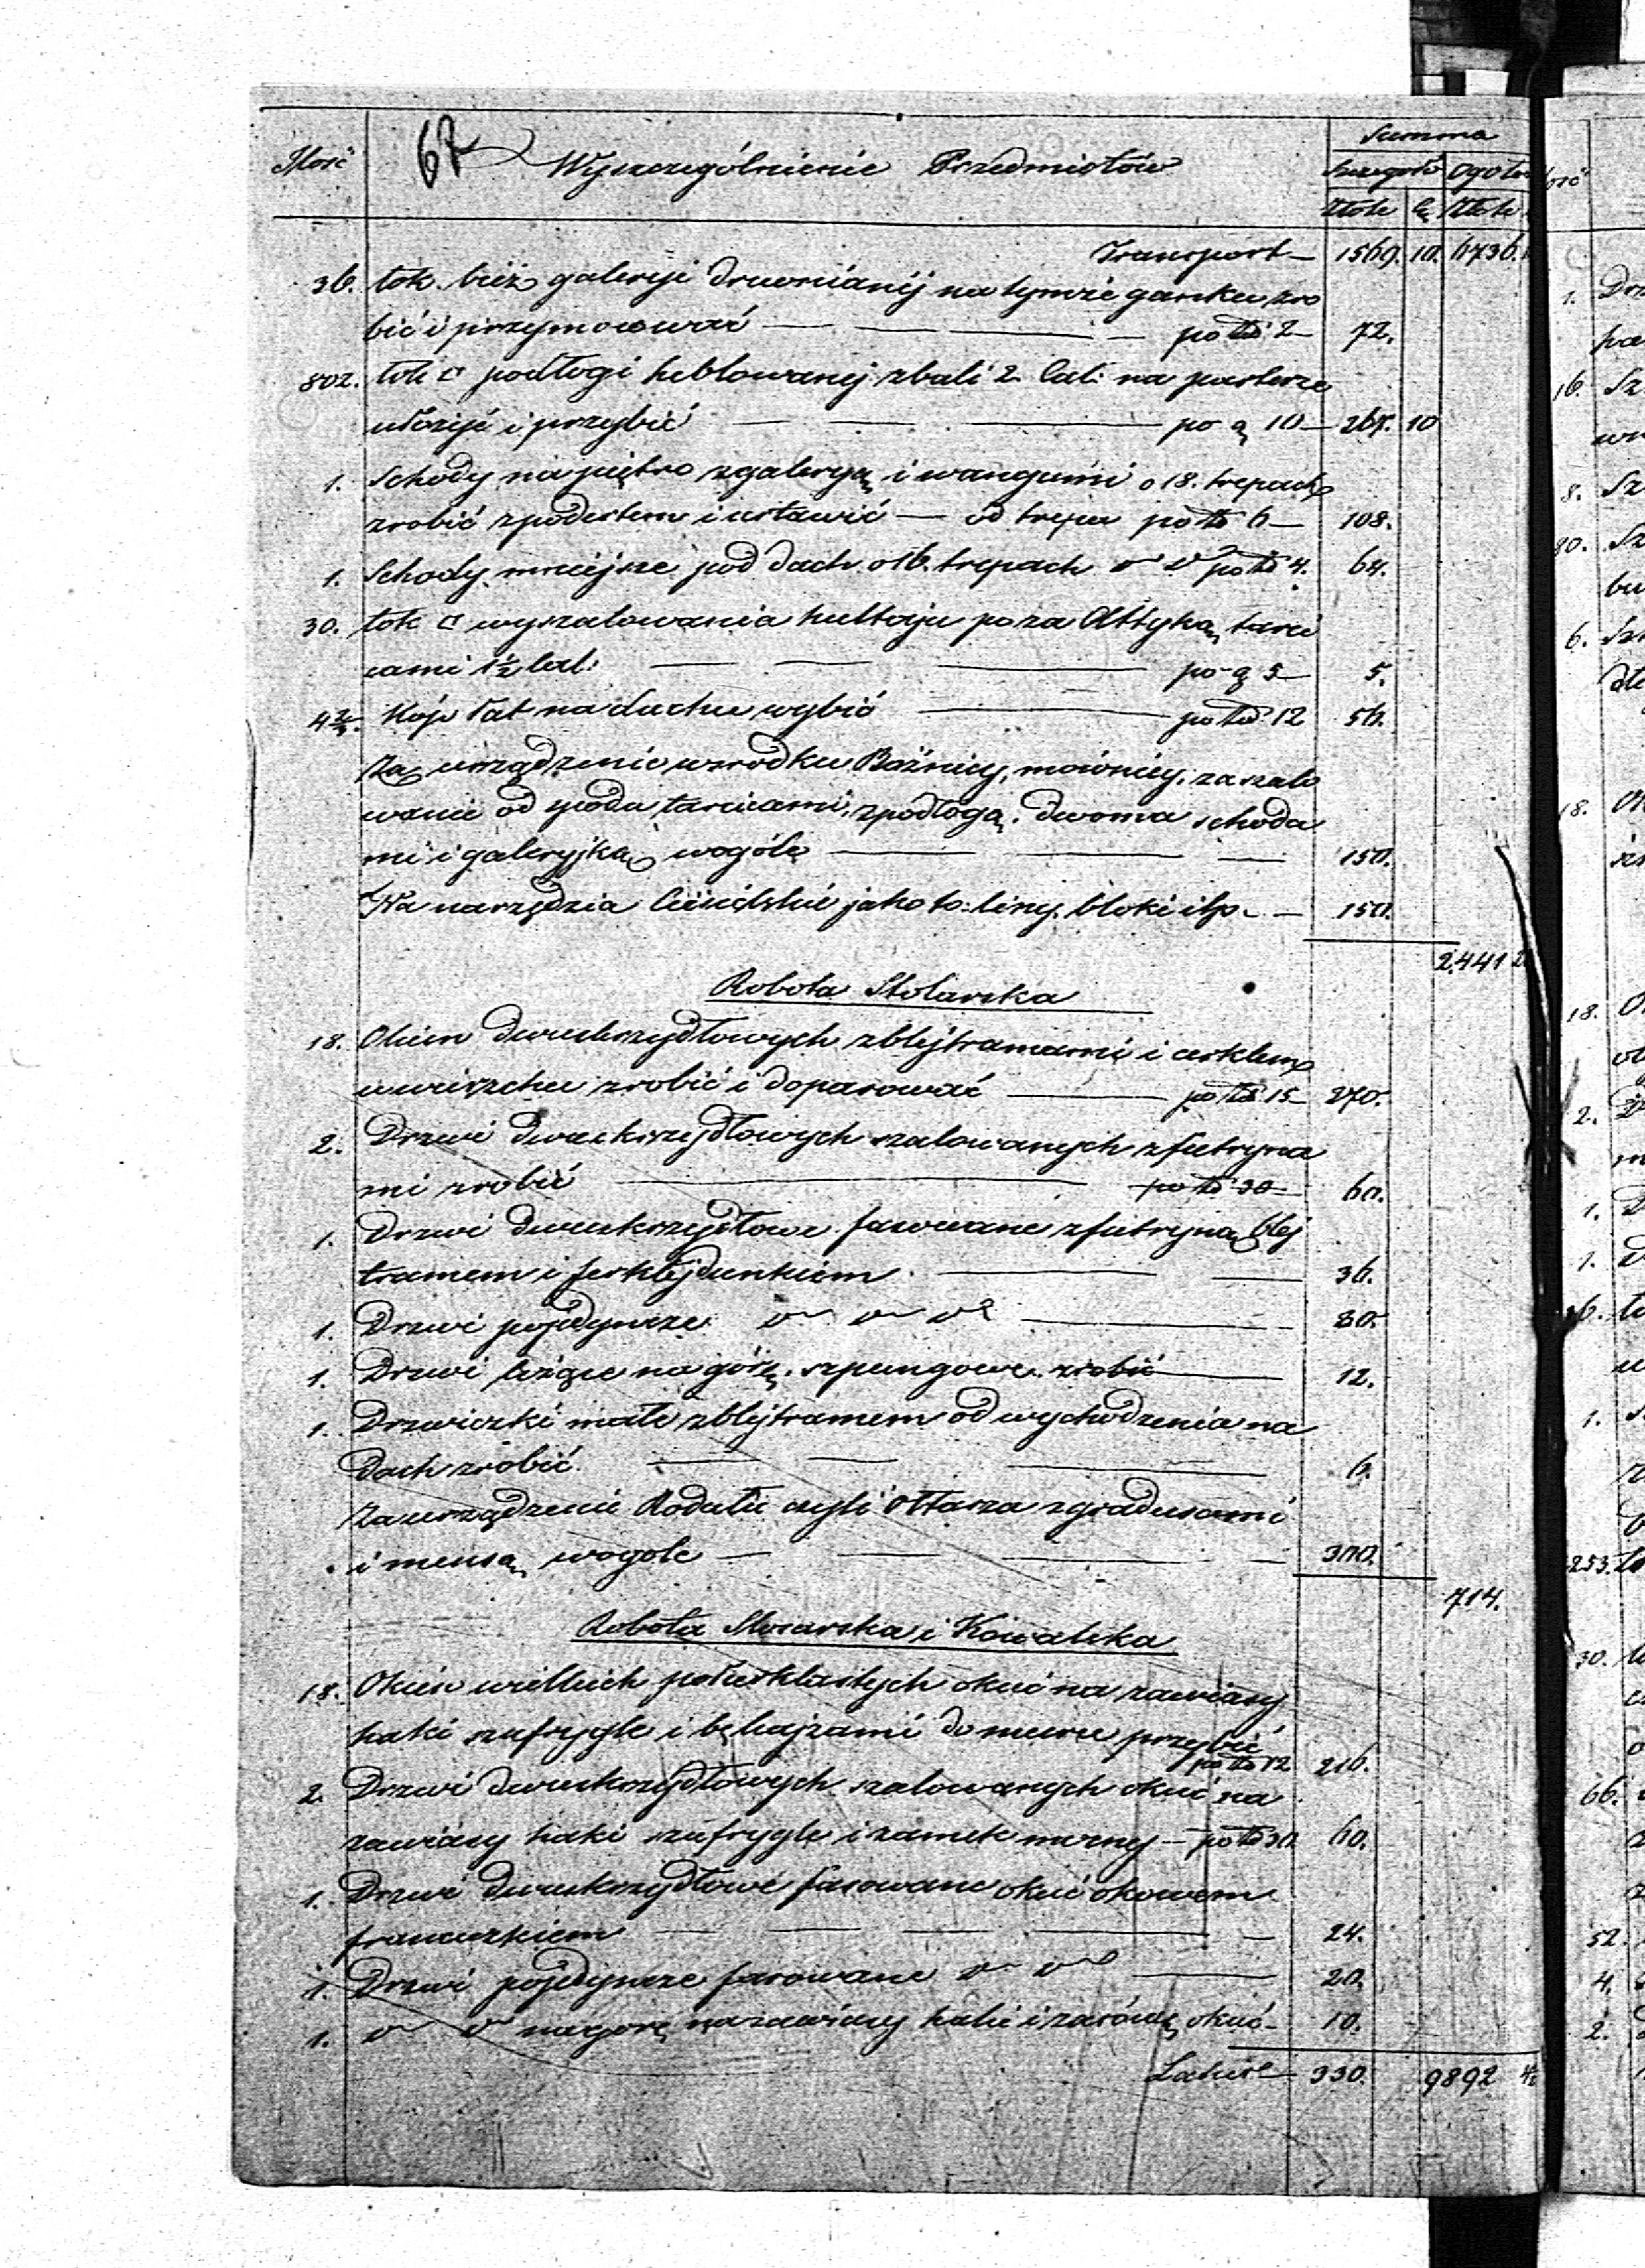 Ilość 67 Wyszczególnienie Przedmiotów Summa
Szczegół Ogół
Złote gr Złote
Transport 1569. 10. 6736.
36. łok. bież galeryi drewnianij na tymże ganku zro
bić i przymocować po złł 2 72.
802. łok □ podłogi heblowanej z bali 2 cal: na parterze
ułożyć i przybić po g 10 267. 10
1. Schody na piętro z galeryą i wangami o 18. trepach
zrobić z podestem i ustawić od trepu po złł 6 108.
1. Schody mniejsze pod dach o 16. trepach po złł 4. 64.
30. łok □ wyszalowania hultaju poza Attyką tarci
cami 1½ cal: po g 5 5.
4⅔. Kóp łat na dachu wybić po złł 12 56.
Za urządzenie wśrodku Bóżnicy, mównicy, zaszalo
wanie od spodu tarcicami, z podłogą, dwoma schoda
mi i galeryjką wogóle 150.
Na narzędzia Ciesielskie jako to: liny, bloki itp. 150.
2441 2
Robota Stolarska
18. Okien dwuskrzydłowych z blejtramami i cerklem
uwierzchu zrobić i dopasować po złł 15 270.
2. Drzwi dwuskrzydłowych szalowanych z futryna
mi zrobić po złł 30 60.
1. Drzwi dwuskrzydłowe fasowane z futryną blej
tramem i ferklejdunkiem 36.
1. Drzwi pojedyncze 30.
1. Drzwi na górę szpungowe zrobić 12.
1. Drzwiczki małe z blejtramem od wychodzenia na
Dach zrobić 6.
Za urządzenie Rodału czyli Ołtarza z gradusami
i mensą wogóle 300.
714.
Robota Slosarska i Kowalska
18. Okien wielkich półcyrklastych okuć na zawiasy
haki szufrygle i do muru przybić
po złł 12 216.
2. Drzwi dwuskrzydłowych szalowanych okuć na
zawiasy haki szufrygle i zamek po złł 30 60.
1. Drzwi dwuskrzydłowe fasowane okuć okowem
francuzkiem 24.
1. Drzwi pojedyncze fasowane 20.
1. na górę na zawiasy haki i zasówkę okuć 10.
Latus 330. 9892